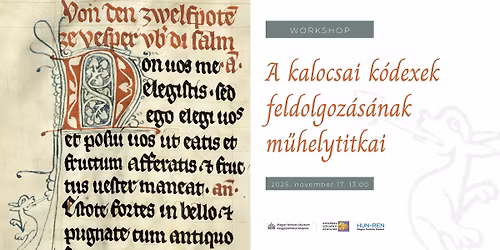 Von den zwelfpotē
ze vesper vb di salm
Don uos me · a·
elegistis · sed
ego elegi uos
et posui uos ut eatis et
fructum afferatis et fruc
tus uester maneat · an·
Estote fortes in bello et
pugnate cum antiquo
WORKSHOP
A kalocsai kódexek
feldolgozásának
műhelytitkai
2025. november 17. 13.00
HUN-REN